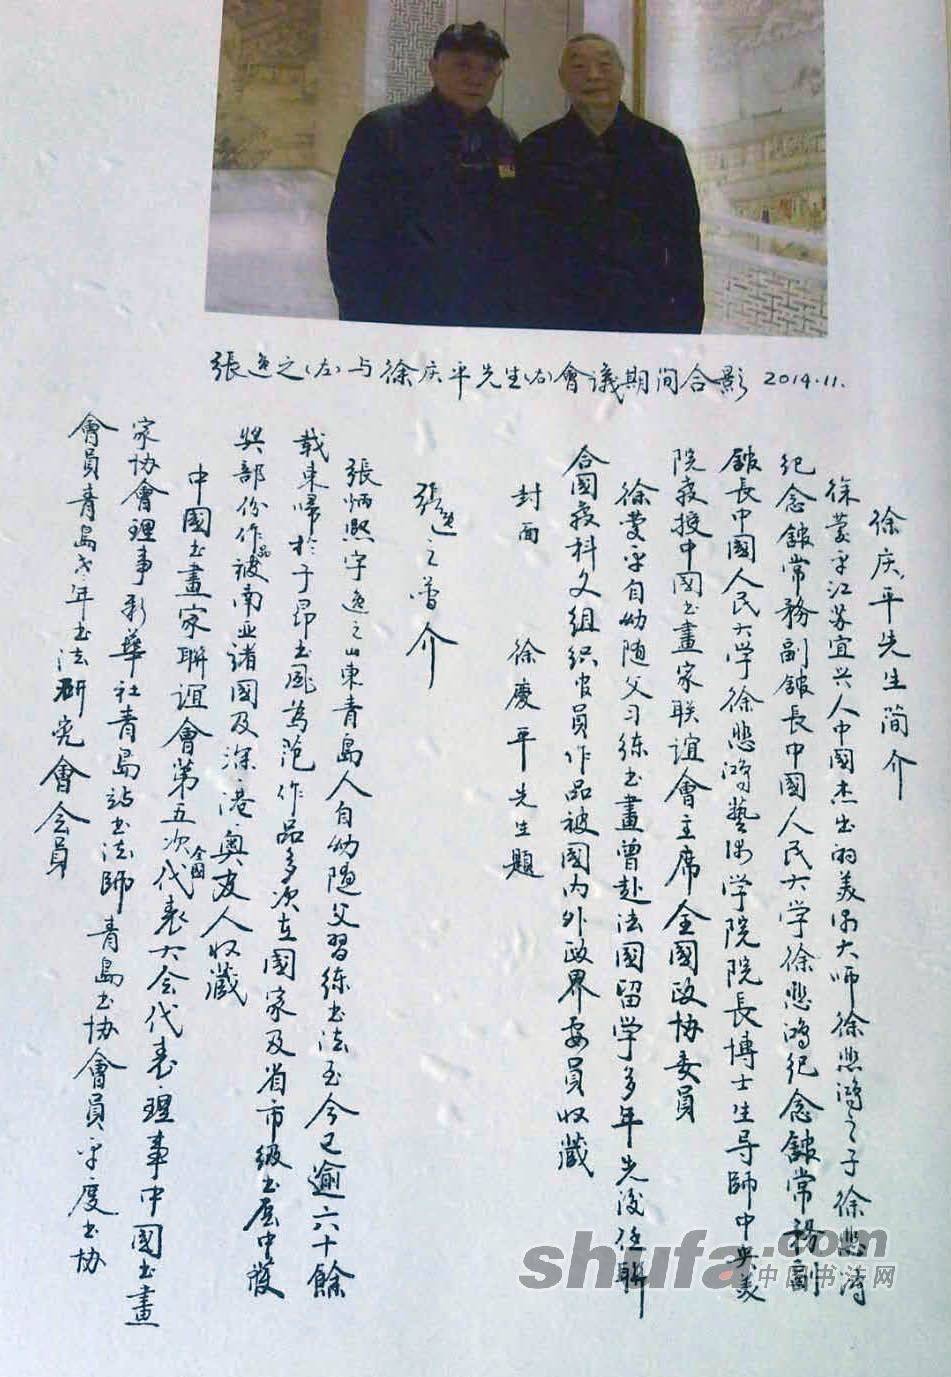 張逸之(左)与徐庆平先生(右)會議期间合影 2014.11.
徐庆平先生简介
徐慶平江苏宜兴人中國杰出的美術大师徐悲鴻之子徐悲鴻
纪念舘常務副舘長中國人民大学徐悲鴻纪念舘常務副
舘長中國人民大学徐悲鴻藝術学院院長博士生导師中央美
院教授中國书畫家联誼會主席全國政协委員
徐慶平自幼随父习练书畫曾赴法國留学多年先後任聯
合國教科文组织官員作品被國内外政界要員收藏
封面 徐慶平先生題
張逸之簡介
張炳熙字逸之山東青島人自幼随父習练书法至今已逾六十餘
载東歸於子昂书風為范作品多次在國家及省市级书展中獲
奖部份作品被南亚諸國及深港奥友人收藏
中國书畫家聯誼會第五次全國代表大会代表理事中國书畫
家协會理事新華社青島站书法師青島书协會員平度书协
會員青島老年书法研究會会員
shufa.com
中国书法网